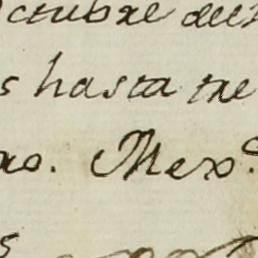 octubre de
s hasta tre
ro. Mexᶜ.
s